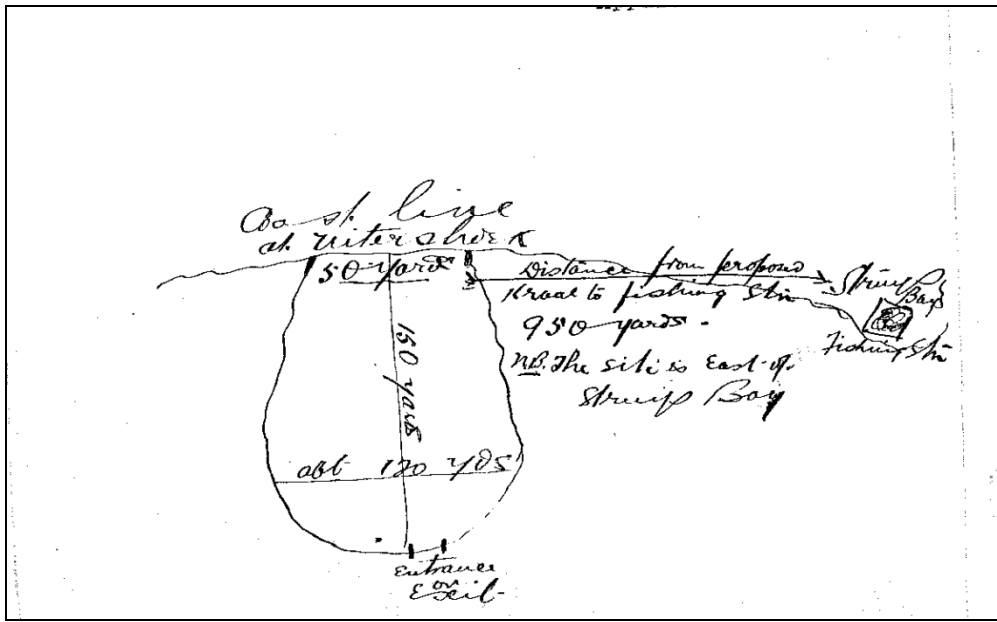 Coast line
at Uitershoek
50 yards
Distance from propose
Kraal to fishing Stn
950 yards.
NB. The site is East of
Struys Bay
Struys
Bay
Fishing Stn
150 yards
abt 120 yds
Entrance
or
Exit